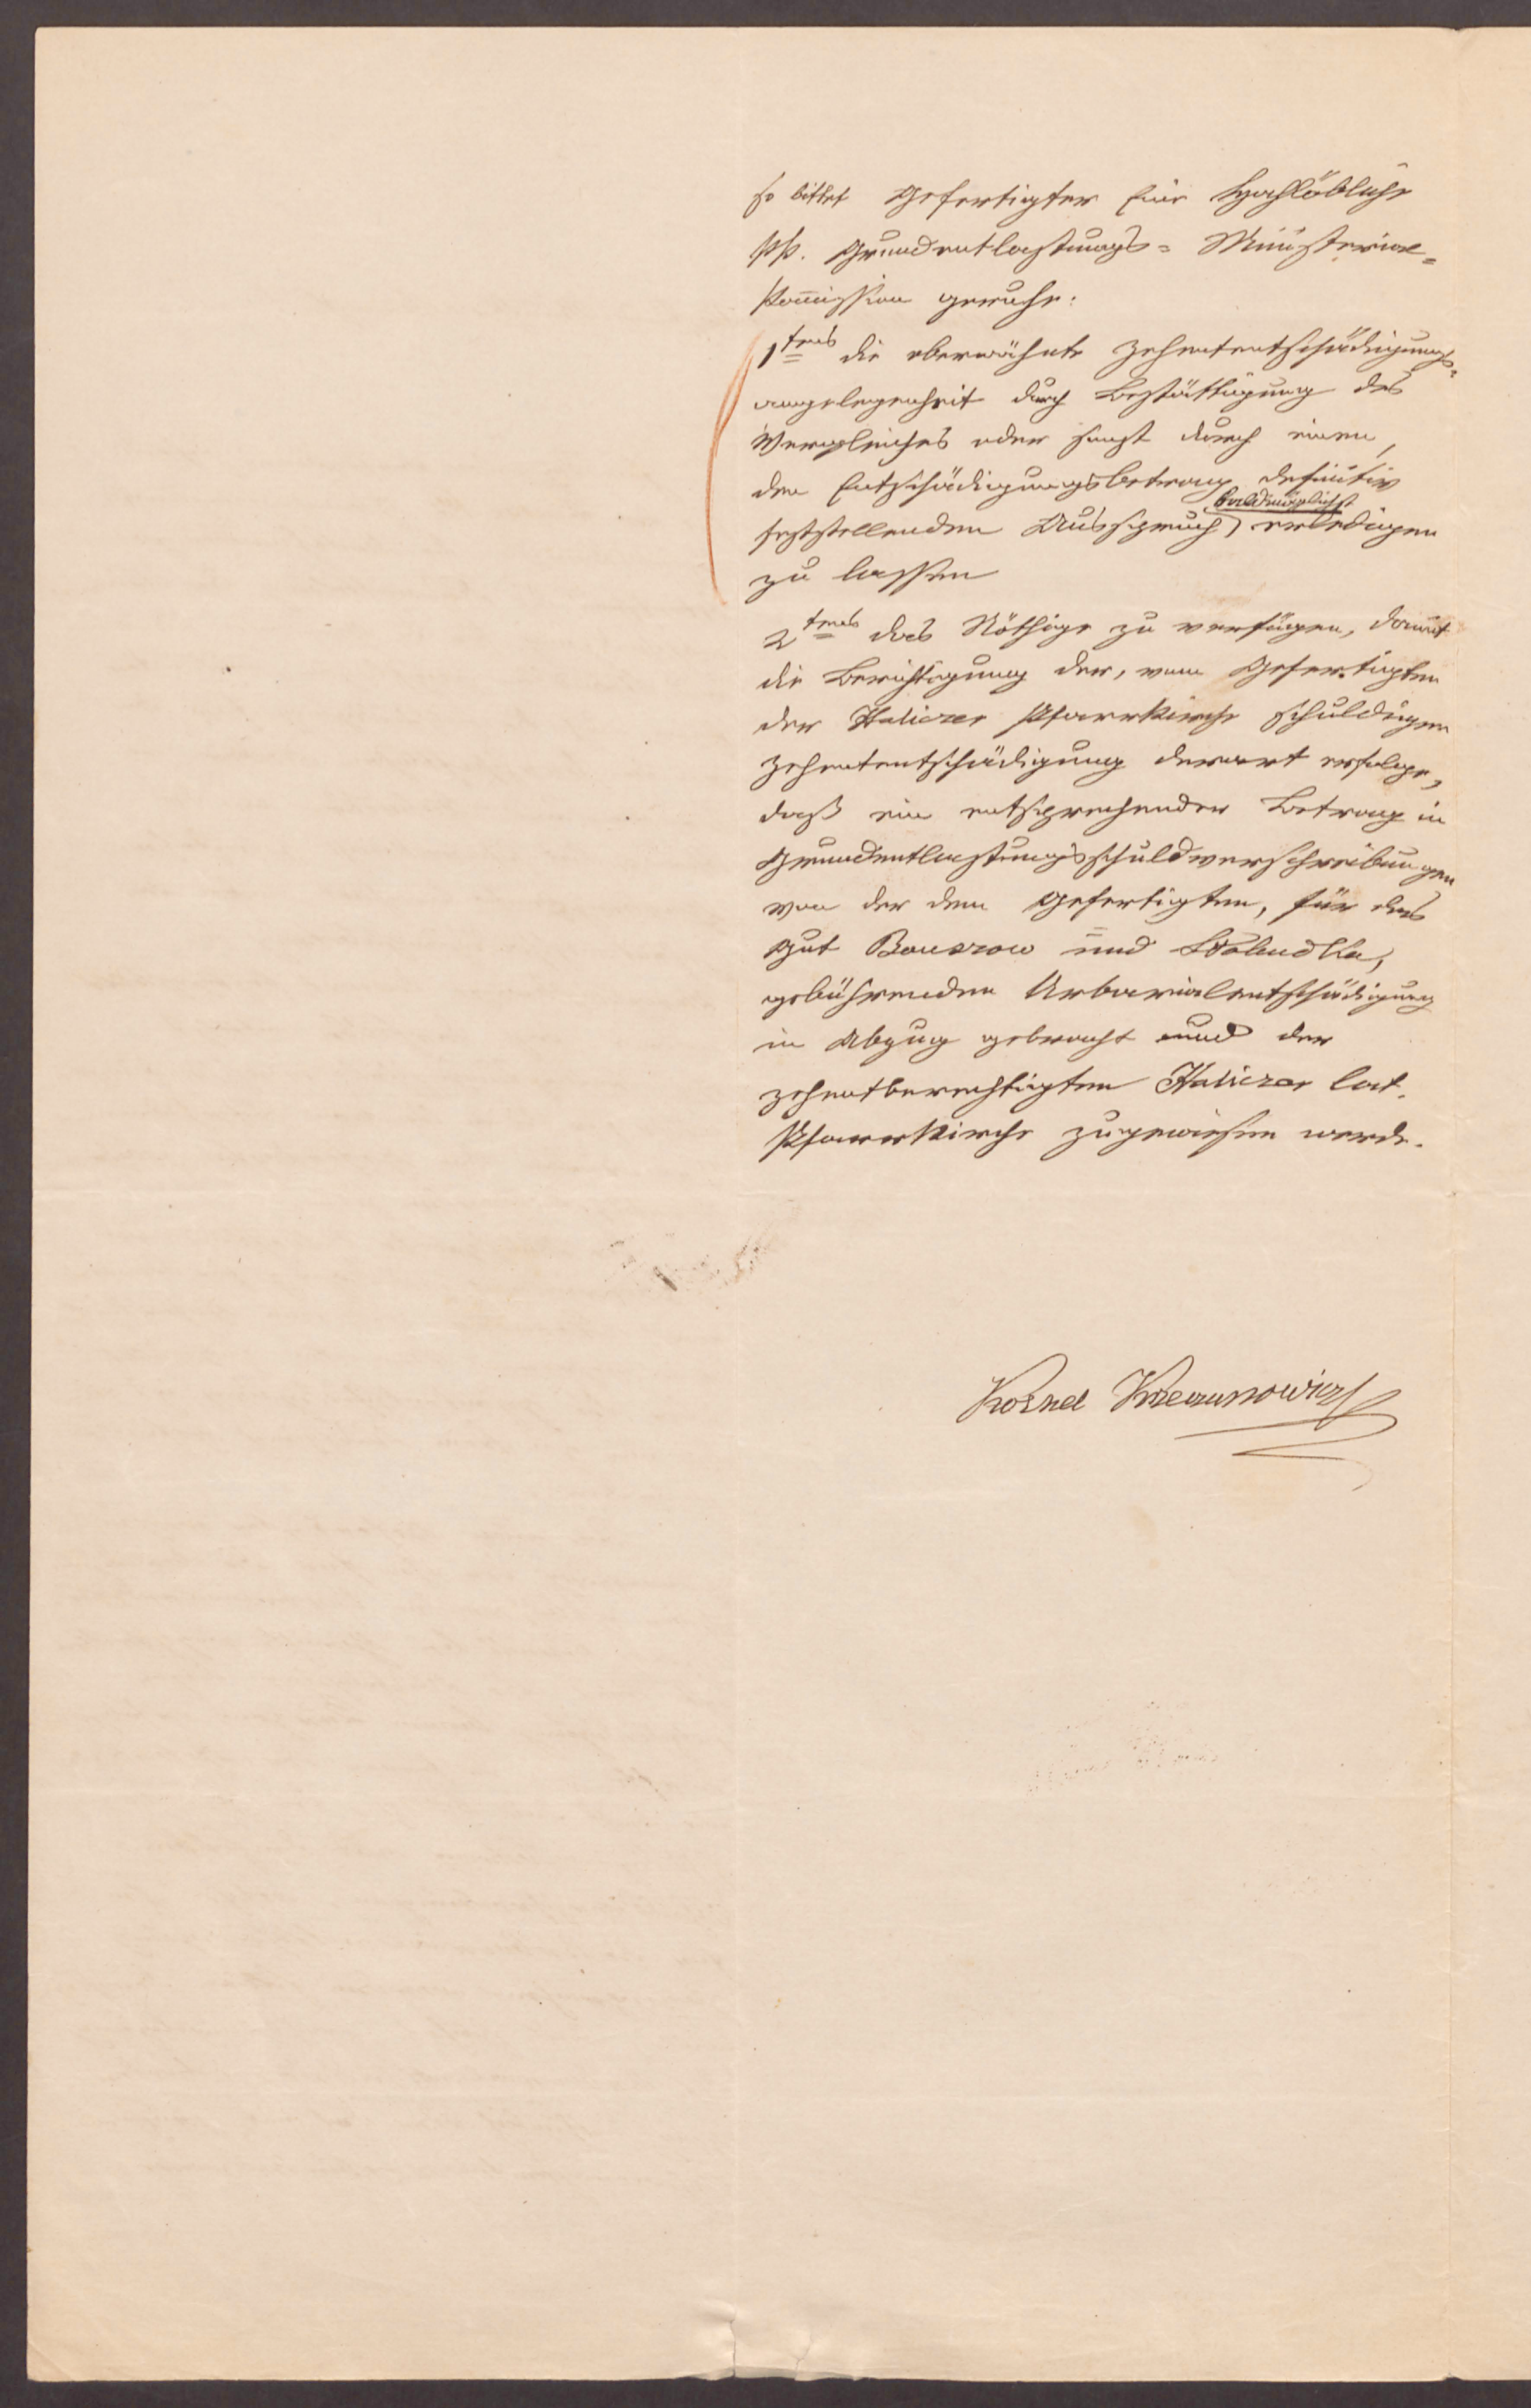 so bittet Gefertigter Eine Hochlöbliche
kk. Grundentlastungs= Ministerial=
Kom̄ission geruhe:
1tens die oberwähnte Zehententschädigungs=
angelegenheit durch Bestättigung des
Vergleiches oder sonst durch einen,
den Entschädigungsbetrag definitiv
baldmöglichst
feststellenden Ausspruch, erledigen
zu lassen
2tens das Nöthige zu verfügen, damit
die Berichtigung der, vom Gefertigten
der Haliczer Pfarrkirche schuldigen
Zehententschädigung derart erfolge,
daß ein entsprechender Betrag in
Grundentlastungsschuldverschreibungen
von der dem Gefertigten, für das
Gut Bouszow und Słobudka,
gebührenden Urbarialentschädigung
in Abzug gebracht und der
zehentberechtigten Haliczer lat.
Pfarrkirche zugewiesen werde.
Kornel Krzeczunowicz